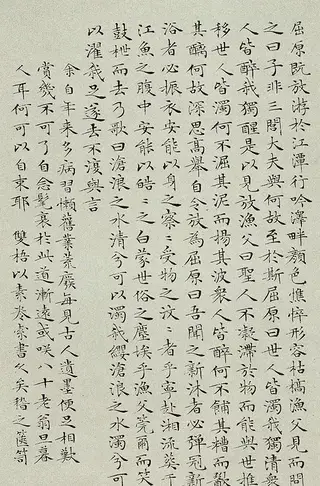 屈原既放游於江潭行吟澤畔顏色憔悴形容枯槁漁父見而問
之曰子非三閭大夫與何故至於斯屈原曰世人皆濁我獨清衆
人皆醉我獨醒是以見放漁父曰聖人不凝滯於物而能與世推
移世人皆濁何不淈其泥而揚其波衆人皆醉何不餔其糟而歠
其醨何故深思高舉自令放為屈原曰吾聞之新沐者必彈冠新
浴者必振衣安能以身之察〻受物之汶〻者乎寧赴湘流葬于
江魚之腹中安能以皓〻之白蒙世俗之塵埃乎漁父莞爾而笑
鼓枻而去乃歌曰滄浪之水清兮可以濯我纓滄浪之水濁兮可
以濯我足遂去不復與言
余自年來多病習懶舊業荒廢每見古人遺墨便足相歎
賞幾不可了自念髦衰於此道漸遠或咲八十老翁旦暮
人耳何可以自束耶 雙梧以素卷索書久矣之篋笥